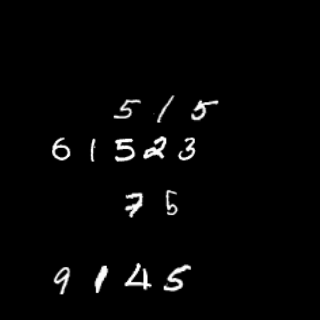 5 1 5
6 1 5 2 3
7 5
9 1 4 5